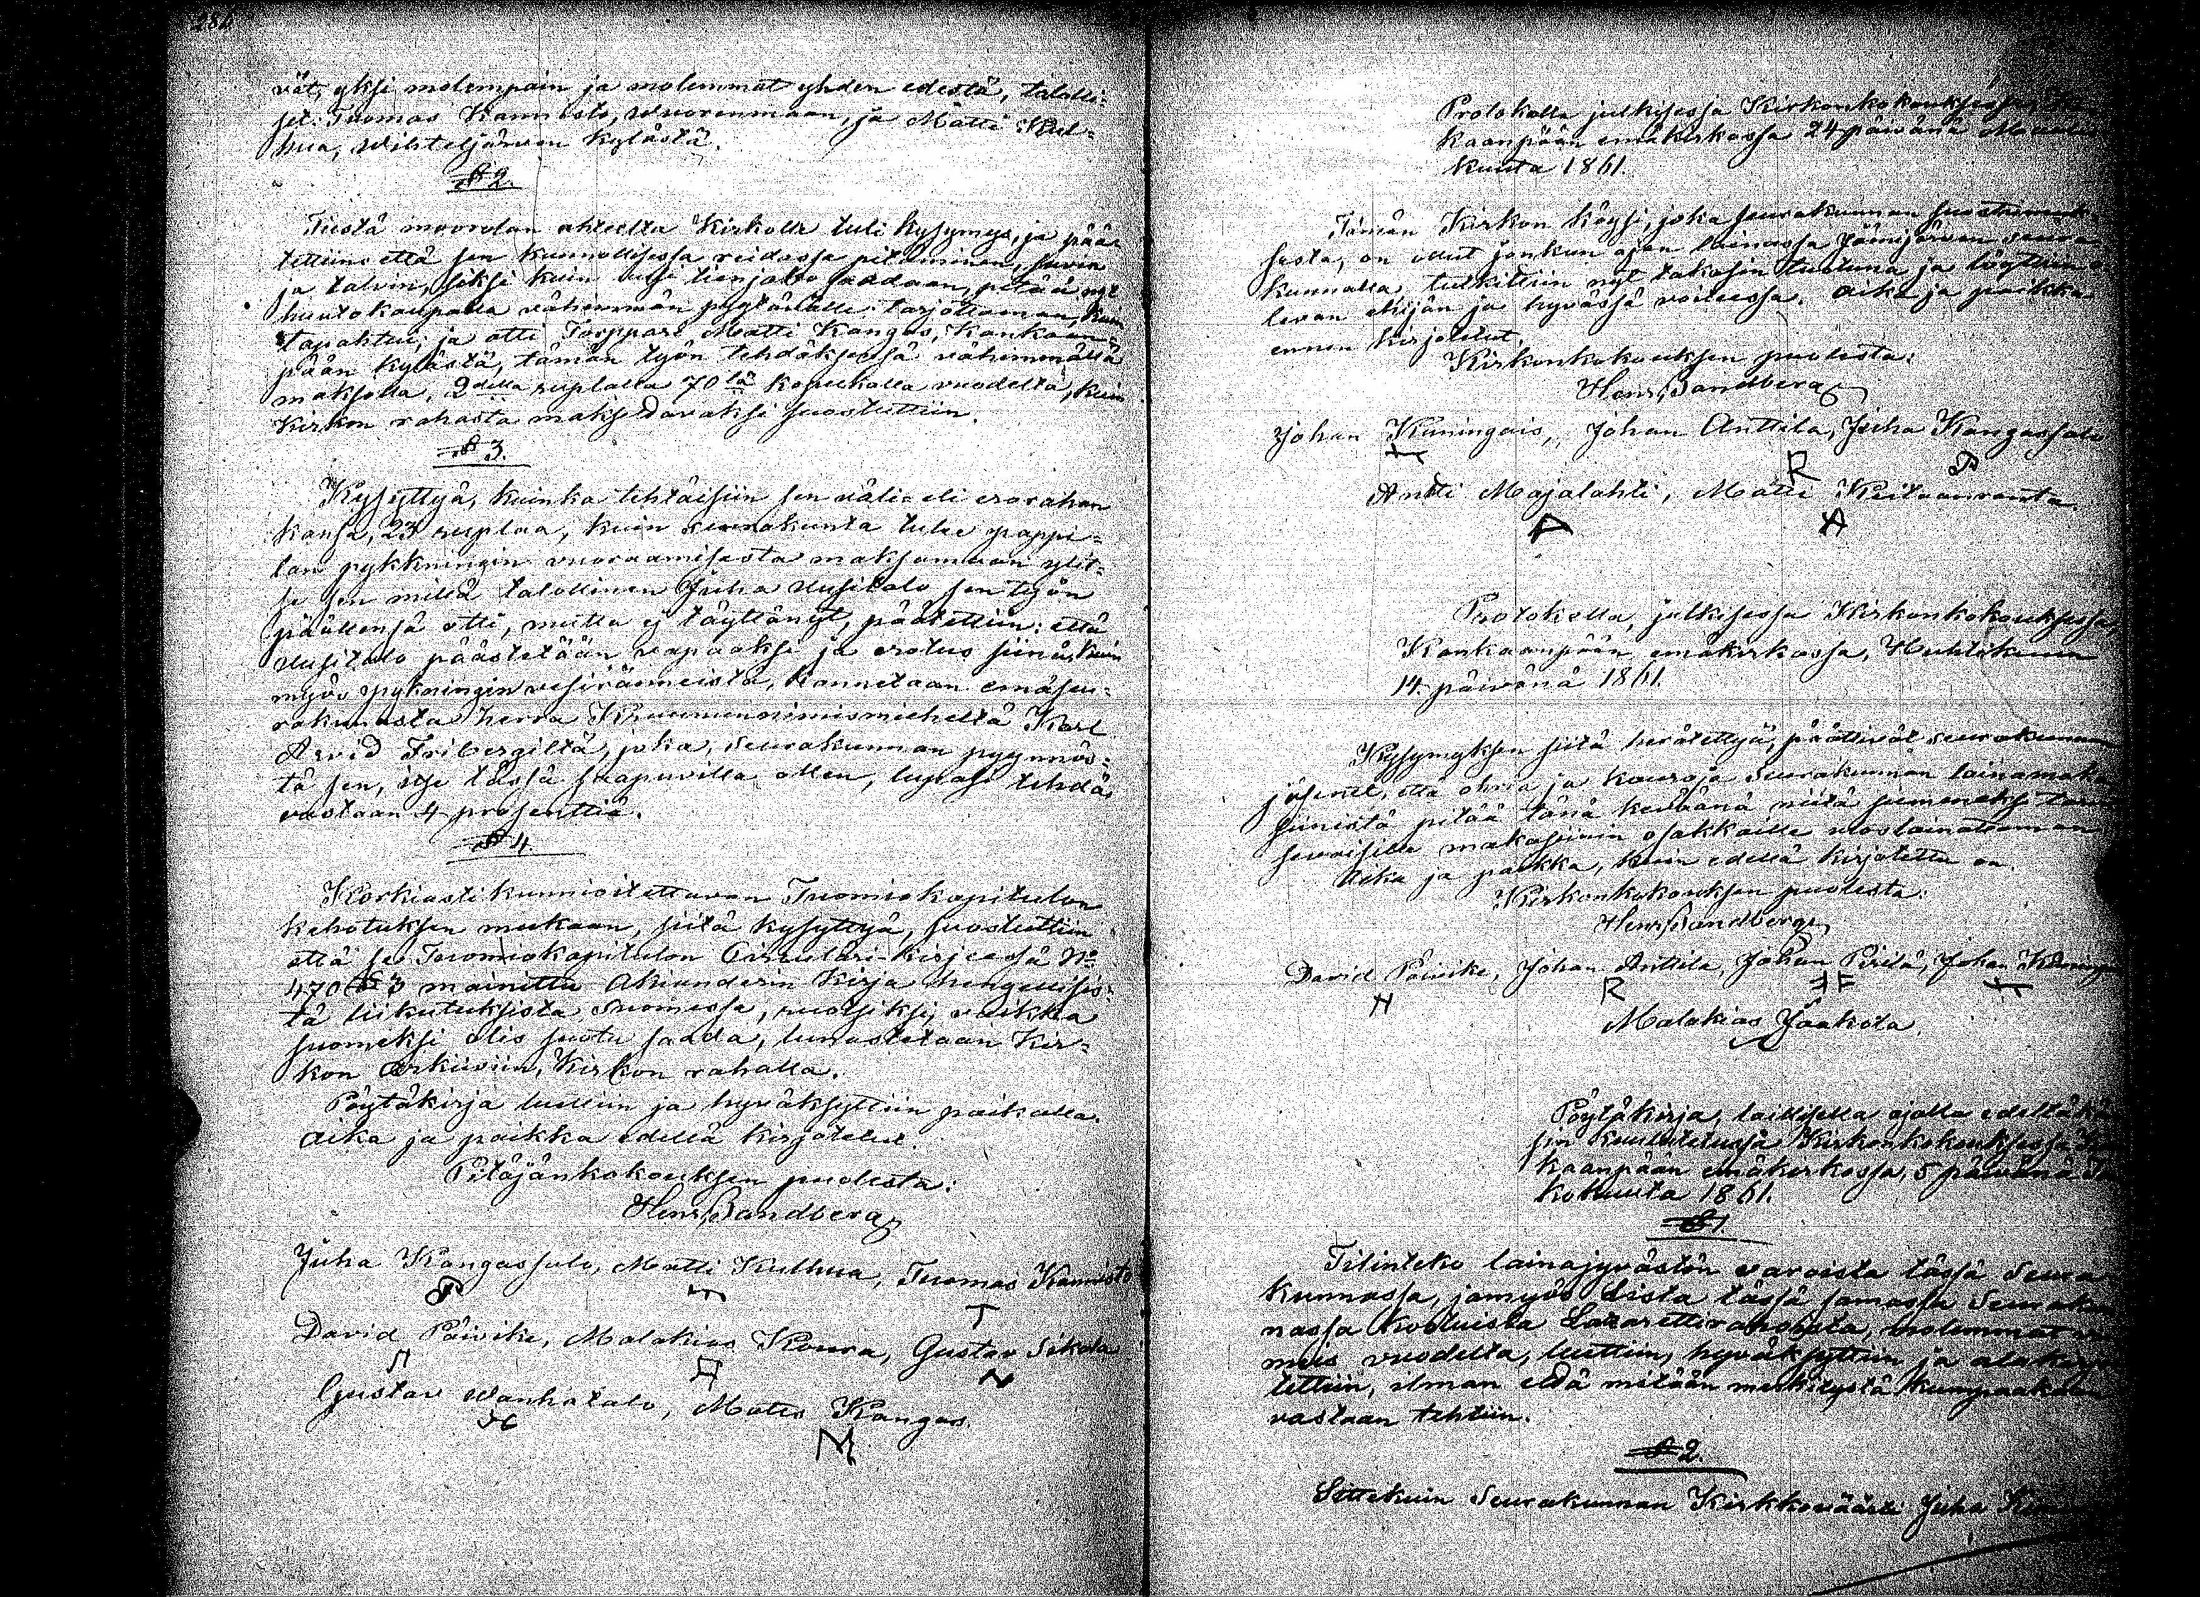 vät, yksi molempain ja molemmat yhden edestä, talolli-
set: Tuomas Kannisto, Wuorenmaan, ja Matti Kul-
hua, Wihteljärven kylästä.
§ 2.
Tiestä ahteelta Kirkolle tuli kysymys, ja pää-
tettiin että sen kunnollisessa reidassa pitäminen, suvin
ja talvin, siksi kuin uusi tienjako saadaan, pitää nyt
huutokaupalla vähimmän pyytävälle tarjottaman, kuin
tapahtui; ja otti Torppari Matti Kangas, Kankaan-
pään kylästä, tämän työn tehdäksensä vähimmällä
maksolla, 2 della ruplalla 70 lä kopeekalla vuodelta, kuin
Kirkon rahasta maksettavaksi suostuttiin.
§ 3.
Kysyttyä, kuinka tehtäisiin sen välin eli erorahan
kansa, 23 ruplaa, kuin seurakunta tulee pappi-
lan pykkningin vuoraamisesta maksamaan ylit-
se sen millä talollinen Juha Uusitalo sen työn
päällensä otti, mutta ej täyttänyt, päätettiin: että
Uusitalo päästetään vapaaksi ja erotus siinä, kuin
myös pykningin vesiränneistä, kannetaan emäseu-
rakunnasta herra Kruununnimismieheltä Karl
Arvid Fribergiltä, joka, seurakunnan pyynnös-
tä sen, itse tässä saapuvilla ollen, lupasi tehdä,
vastaan 4 prosenttia.
§ 4.
Korkiasti kunnioitettavan Tuomiokapitulon
kehotuksen mukaan, siitä kysyttyä, suostuttiin
että se Tuomiokapitulon Cirkuläri-kirjeessä No
470 § 3 mainittu Akianderin Kirja hengellisis-
tä liikutuksista Suomessa, ruotsiksi, vaikka
suomeksi olis suotu saada, lunastetaan Kir-
kon Arkiiviin, Kirkon rahalla.
Pöytäkirja luettiin ja hyväksyttiin paikalla.
Aika ja paikka edellä kirjotetut.
Pitäjänkokouksen puolesta:
Henr. Sandberg
Juha Kangassalo, Matti Kulhua, Tuomas Kannisto
David Päivike, Malakias Koura, Gustav Sikala
Gustav Wanhatalo, Matts Kangas.
Protokolla julkisessa Kirkonkokouksessa
kaanpään emäkirkossa 24 päivänä
kuuta 1861.
Tämän Kirkon köysi, joka seurakunnan
sesta, on ollut jonkun ajan lainassa Jämijärven seura-
kunnalla, tutkittiin nyt takasin tuotuna ja löyttiin
levan ehijän ja hyvässä voileessa. Aika ja paikka
ennen kirjotetut.
Kirkonkokouksen puolesta:
Henr. Sandberg
Johan Kuningais, Johan Anttila, Juha Kangassalo
Antti Majalahti, Matti Keitaanranta.
Protokolla, julkisessa Kirkonkokouksessa,
Kankaanpään emäkirkossa, Huhtikuun
14. päivänä 1861.
Kysymyksen siitä herätettyä, päättivät seurakunnan
jäsenet, että ohria ja kauroja Seurakunnan lainamaka
siinistä pitää tänä keväänä niitä siemeneksi
makasiinin osakkaille uloslainattaman
Aika ja paikka, kuin edellä kirjotettu on.
Kirkonkokouksen puolesta:
Henr. Sandberg
David Päivike, Johan Anttila, Johan Perilä, Johan
Malakias Jaakola
Pöytäkirja, laillisella ajalla edeltäkä
sin kuulutetussa Kirkonkokouksessa
kaanpään emäkirkossa, 5 päivänä
kokuuta 1861.
§ 1.
Tilinteko lainajyvästön varoista tässä Seura
kunnassa, jamyös siitä tässä samassa Seuraku
nassa kootuista Lazarettivaroista, molemmat
mis vuodelta, luettiin, hyväksyttiin ja alakirjo
tettiin, ilman että mitään muistutystä kumpaakaan
vastaan tehtiin.
§ 2.
Sittekuin Seurakunnan Kirkkoväärti Juha